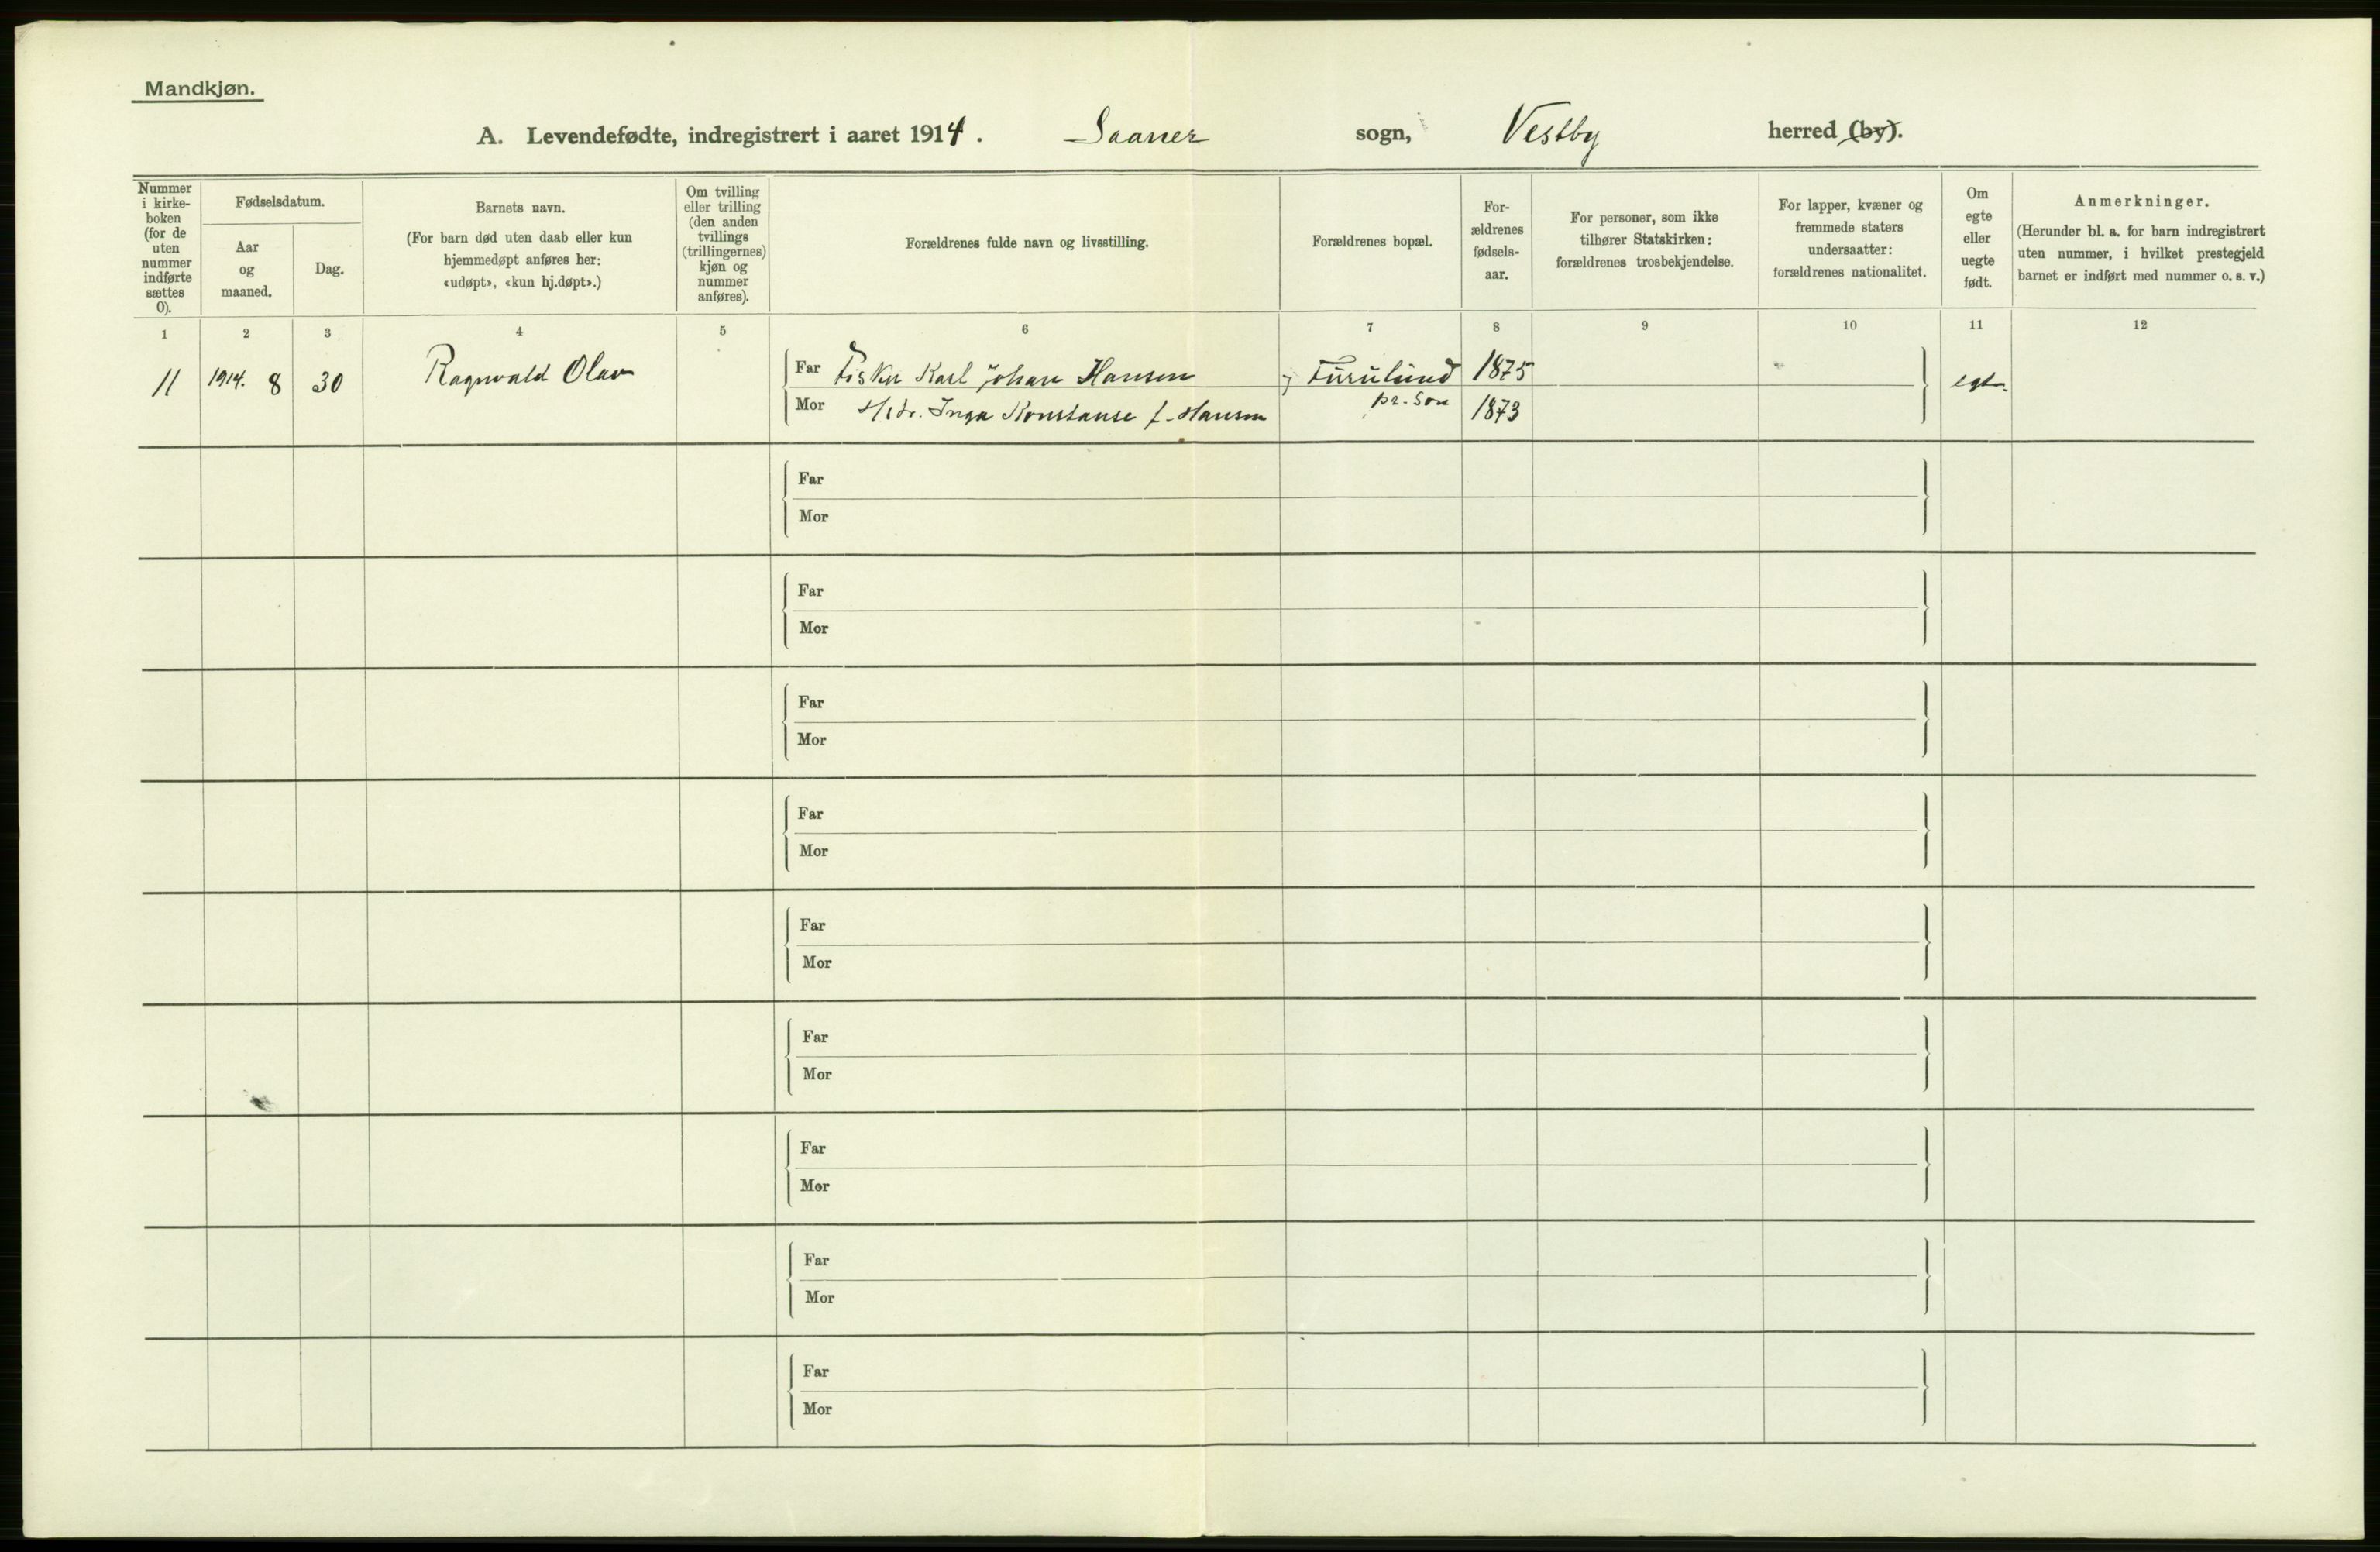 Mandkjøn.
A. Levendefødte, indregistrert i aaret 1914. Saaner sogn, Vestby herred (by).
Nummer
i kirke-
boken
(for de
uten
nummer
indførte
sættes
0).
Fødselsdatum.
Aar
og
maaned.
Dag.
Barnets navn.
(For barn død uten daab eller kun
hjemmedøpt anføres her:
«udøpt», «kun hj.døpt».)
Om tvilling
eller trilling
(den anden
tvillings
(trillingernes)
kjøn og
nummer
anføres).
Forældrenes fulde navn og livsstilling.
Forældrenes bopæl.
For-
ældrenes
fødsels-
aar.
For personer, som ikke
tilhører Statskirken:
forældrenes trosbekjendelse.
For lapper, kvæner og
fremmede staters
undersaatter:
forældrenes nationalitet.
Om
egte
eller
uegte
født.
Anmerkninger.
(Herunder bl. a. for barn indregistrert
uten nummer, i hvilket prestegjeld
barnet er indført med nummer o. s. v.)
1 2 3 4 5 6 7 8 9 10 11 12
11 1914. 8 30 Ragnvald Olav Far Fisker Karl Johan Hansen Furulund 1875 egte
Mor Inga Konstanse f. Hansen pr. Son 1873
Far
Mor
Far
Mor
Far
Mor
Far
Mor
Far
Mor
Far
Mor
Far
Mor
Far
Mor
Far
Mor